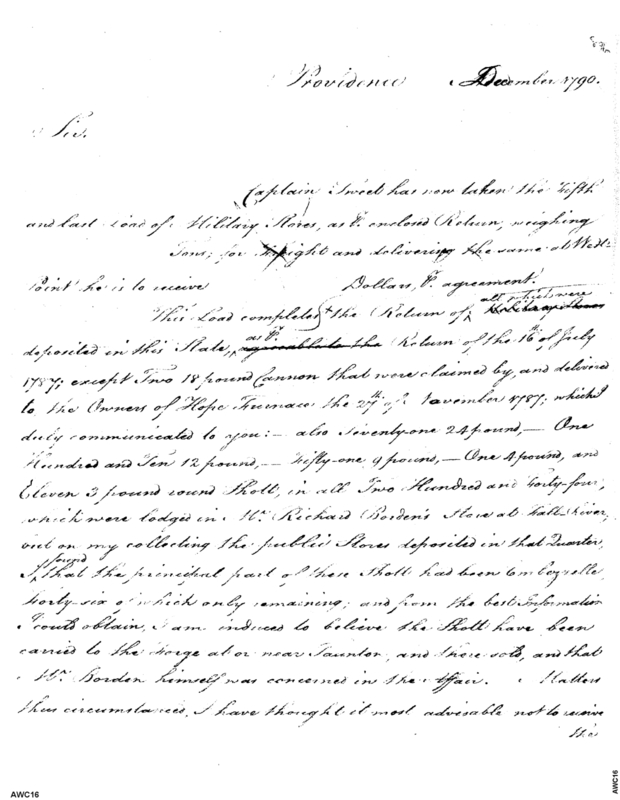 Providence December 1790.
Sir.
Captain Tweet has now taken the Fifth
and last Load of Military Stores, as P. enclosed Return, weighing
Tons; for Freight and delivering the same at West-
Point he is to receive Dollars, P. agreement.
This Load completes the Return of, all which were
deposited in this State, as P. agreeable to the Return of the 16th of July
1787; except Two 18 pound Cannon that were claimed by, and delivered
to the Owners of Hope Furnace the 27th of November 1787; which I
duly communicated to you: — also Seventy-one 24 pound, — One
Hundred and Ten 12 pound, — Fifty-one 9 pound, — One 4 pound, and
Eleven 3 pound round Shott, in all Two Hundred and Forty-four,
which were lodged in Mr. Richard Borden's Store at Fall-River,
but on my collecting the public Stores deposited in that Quarter,
I found that the principal part of these Shott had been Embezzelled
Forty-six of which only remaining; and from the best Information
I could obtain, I am induced to believe the Shott have been
carried to the Forge at or near Taunton, and there sold, and that
Mr. Borden himself was concerned in the Affair. Matters
thus circumstances, I have thought it most advisable not to receive
the
AWC16
AWC16